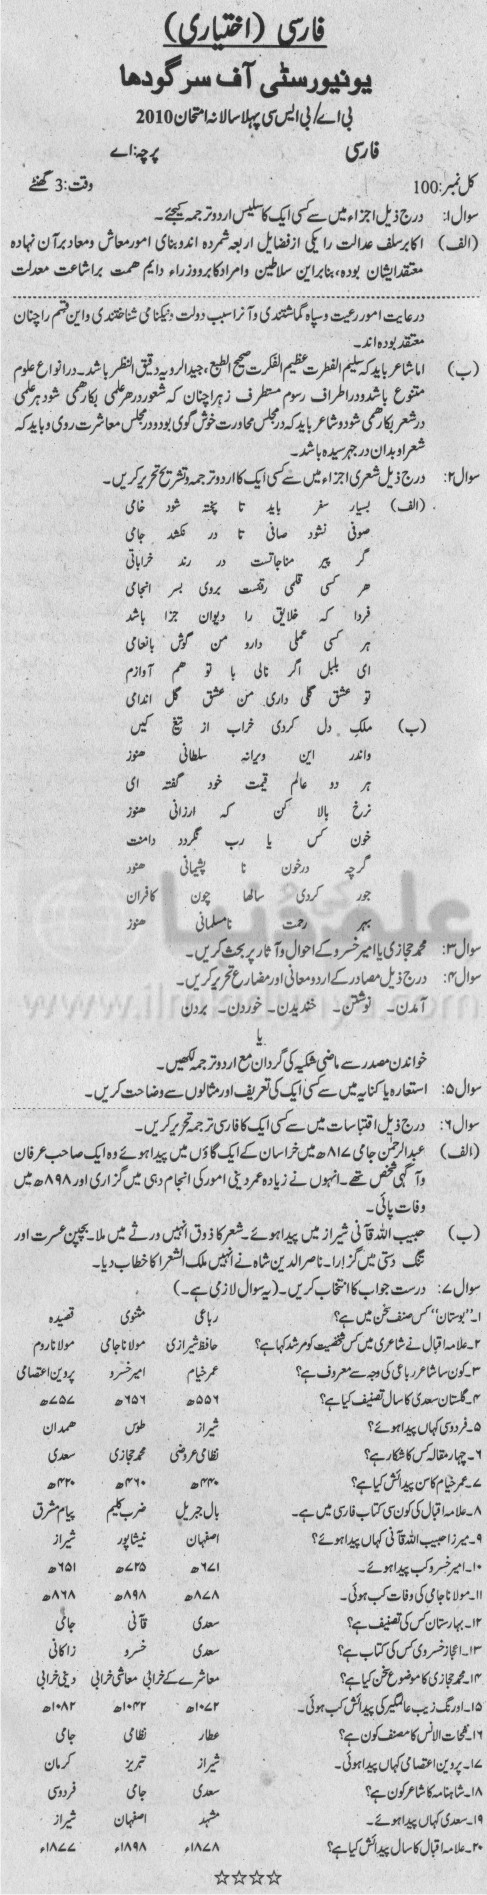 فارسی (اختیاری)
یونیورسٹی آف سرگودھا
بی اے/بی ایس سی پہلا سالانہ امتحان 2010
فارسی پرچہ: اے
کل نمبر: 100 وقت: 3 گھنٹے
سوال ۱: درج ذیل اجزاء میں سے کسی ایک کا سلیس اردو ترجمہ کیجئے۔
(الف) اکابر سلف عدالت را یکی از فضایل اربعہ شمردہ اند و بنای امور معاش و معاد بر آن نہادہ
معتقد ایشان بودہ، بنابر این سلاطین و امراد کابر و وزراء دایم ھمت بر اشاعت معدلت
در عایت امور رعیت و سپاہ گماشتندی و آنرا سبب دولت و نیکنامی شناختندی و این قسم را چنان
معتقد بودہ اند۔
(ب) اما شاعر باید کہ سلیم الفطرت عظیم الفکرت صحیح الطبع، جید الرویہ دقیق النظر باشد۔ در انواع علوم
متنوع باشد و در اطراف رسوم مستطرف زیرا چنان کہ شعور در ھر علمی بکار ھمی شود ہر علمی
در شعر بکار ھمی شود و شاعر باید کہ در مجلس محاورت خوش گوی بود و در مجلس معاشرت روی و باید کہ
شعر او بدان درجہ رسیدہ باشد۔
سوال ۲: درج ذیل شعری اجزاء میں سے کسی ایک کا اردو ترجمہ و تشریح تحریر کریں۔
(الف) بسیار سفر باید تا پختہ شود خامی
صوفی نشود صافی تا در نکشد جامی
گر پیر مناجاتست در رند خراباتی
ھر کسی قلمی رفتست بروی بسر انجامی
فردا کہ خلایق را دیوان جزا باشد
ہر کسی عملی دارو من گوش بانعامی
ای بلبل اگر نالی با تو ھم آوازم
تو عشق گلی داری من عشق گل اندامی
(ب) ملک دل کردی خراب از تیغ کیں
واندر این ویرانہ سلطانی ھنوز
ہر دو عالم قیمت خود گفتہ ای
نرخ بالا کن کہ ارزانی ھنوز
خون کس یا رب نگردد دامنت
گرچہ درخون نا پشیمانی ھنود
جور کردی سالھا چون کافران
بہر رحمت نامسلمانی ھنوز
سوال ۳: محمد حجازی یا امیر خسرو کے احوال و آثار پر بحث کریں۔
سوال ۴: درج ذیل مصادر کے اردو معانی اور مضارع تحریر کریں۔
آمدن۔ نوشتن۔ خندیدن۔ خوردن۔ بردن
یا
خواندن مصدر سے ماضی شکیہ کی گردان مع اردو ترجمہ لکھیں۔
سوال ۵: استعارہ یا کنایہ میں سے کسی ایک کی تعریف اور مثالوں سے وضاحت کریں۔
سوال ۶: درج ذیل اقتباسات میں سے کسی ایک کا فارسی ترجمہ تحریر کریں۔
(الف) عبدالرحمٰن جامی ۸۱۷ھ میں خراسان کے ایک گاؤں میں پیدا ہوئے وہ ایک صاحب عرفان
و آگہی شخص تھے۔ انہوں نے زیادہ عمر دینی امور کی انجام دہی میں گزاری اور ۸۹۸ھ میں
وفات پائی۔
(ب) حبیب اللہ قاآنی شیراز میں پیدا ہوئے۔ شعر کا ذوق انہیں ورثے میں ملا۔ بچپن عسرت اور
تنگ دستی میں گزرا۔ ناصر الدین شاہ نے انہیں ملک الشعرا کا خطاب دیا۔
سوال ۷: درست جواب کا انتخاب کریں۔ (یہ سوال لازمی ہے۔)
۱۔ "بوستان" کس صنف سخن میں ہے؟ رباعی مثنوی قصیدہ
۲۔ علامہ اقبال نے شاعری میں کس شخصیت کو مرشد کہا ہے؟ حافظ شیرازی مولانا جامی مولانا روم
۳۔ کون سا شاعر رباعی کی وجہ سے معروف ہے؟ عمر خیام امیر خسرو پروین اعتصامی
۴۔ گلستان سعدی کا سال تصنیف کیا ہے؟ ۵۵۶ھ ۶۵۶ھ ۷۵۷ھ
۵۔ فردوسی کہاں پیدا ہوئے؟ شیراز طوس ھمدان
۶۔ چہار مقالہ کس کا شکار ہے؟ نظامی عروضی محمد حجازی سعدی
۷۔ عمر خیام کا سن پیدائش کیا ہے؟ ۴۴۰ھ ۴۶۰ھ ۴۲۰ھ
۸۔ علامہ اقبال کی کون سی کتاب فارسی میں ہے۔ بال جبریل ضرب کلیم پیام مشرق
۹۔ میرزا حبیب اللہ قاآنی کہاں پیدا ہوئے؟ اصفہان نیشاپور شیراز
۱۰۔ امیر خسرو کب پیدا ہوئے۔ ۶۷۱ھ ۷۲۵ھ ۶۵۱ھ
۱۱۔ مولانا جامی کی وفات کب ہوئی۔ ۸۷۸ھ ۸۹۸ھ ۸۶۸ھ
۱۲۔ بہارستان کس کی تصنیف ہے؟ سعدی قاآنی جامی
۱۳۔ اعجاز خسروی کس کی کتاب ہے؟ سعدی خسرو زاکانی
۱۴۔ محمد حجازی کا موضوع سخن کیا ہے؟ معاشرے کے خرابی معاشی خرابی دینی خرابی
۱۵۔ اورنگ زیب عالمگیر کی پیدائش کب ہوئی۔ ۱۰۷۲ھ ۱۰۴۲ھ ۱۰۸۲ھ
۱۶۔ نفحات الانس کا مصنف کون ہے؟ عطار نظامی جامی
۱۷۔ پروین اعتصامی کہاں پیدا ہوئی۔ شیراز تبریز کرمان
۱۸۔ شاہنامہ کا شاعر کون ہے؟ سعدی جامی فردوسی
۱۹۔ سعدی کہاں پیدا ہوئے۔ مشہد اصفہان شیراز
۲۰۔ علامہ اقبال کا سال پیدائش کیا ہے؟ ۱۸۷۸ء ۱۸۹۸ء ۱۸۷۷ء
علم کی دنیا
www.ilmkidunya.com